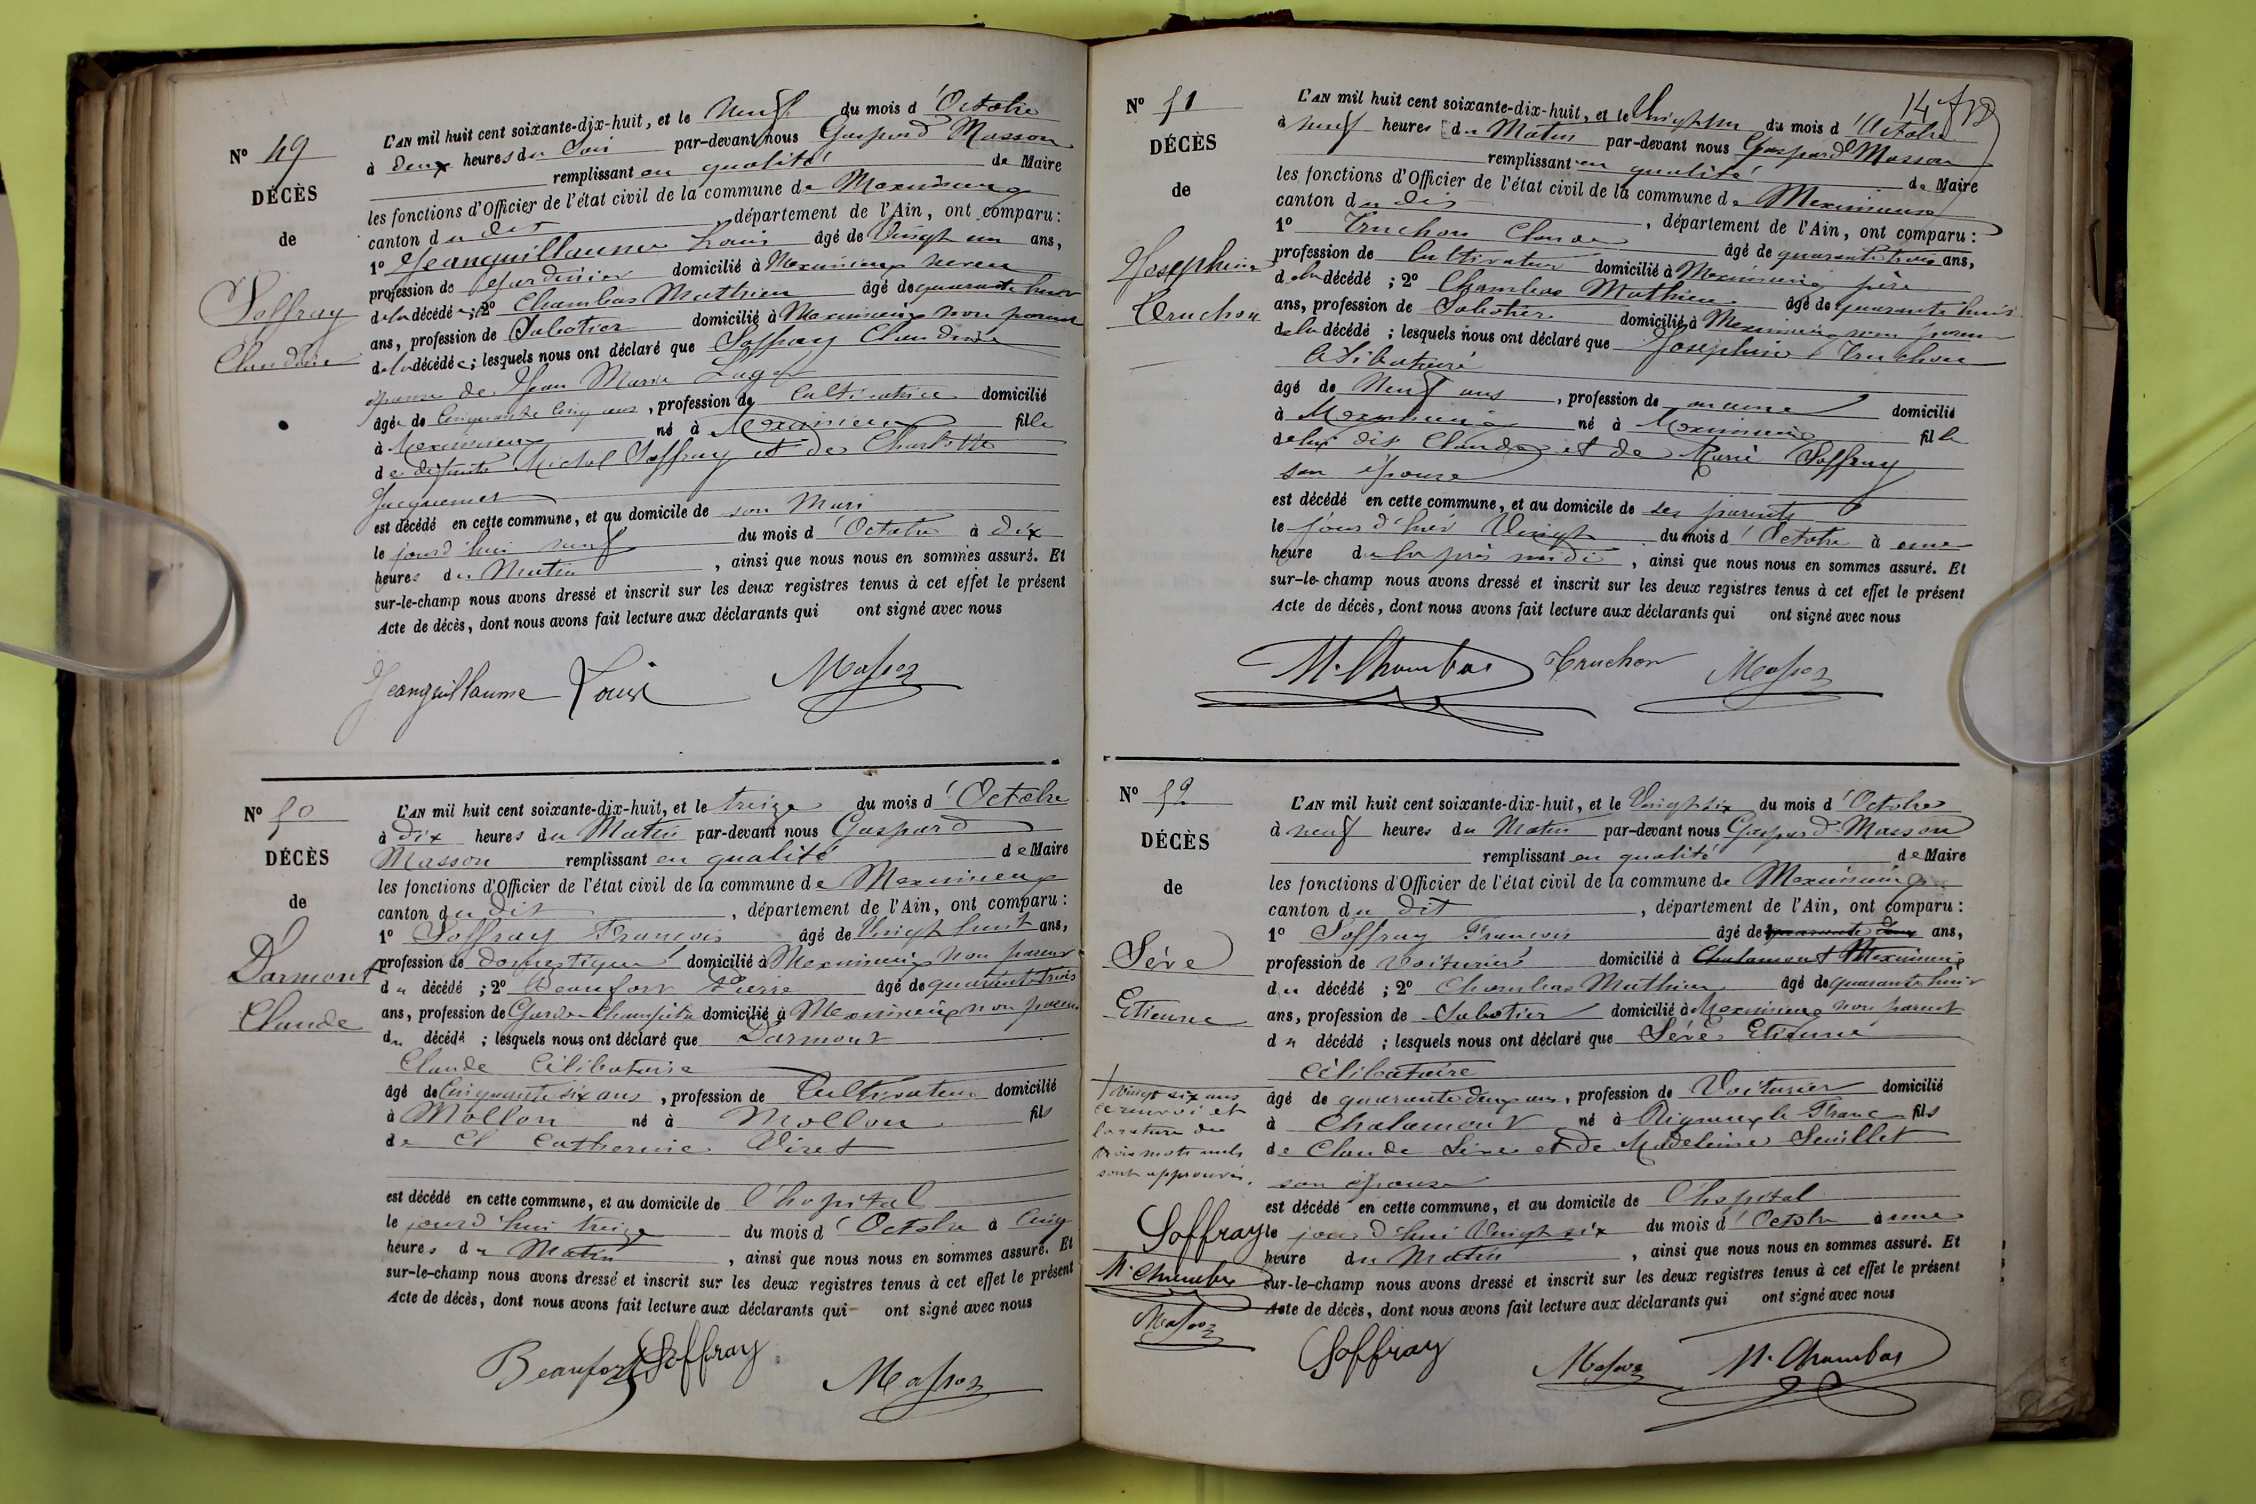 N° 49
DÉCÈS
de
Soffray
Claudine
L'AN mil huit cent soixante-dix-huit, et le neuf du mois d'Octobre
à deux heures du Soir par-devant nous Gaspard Masson
remplissant en qualité de Maire
les fonctions d'Officier de l'état civil de la commune de Meximieux
canton du dit, département de l'Ain, ont comparu :
1° Jeanguillaume Louis âgé de Vingt un ans,
profession de Jardinier domicilié à Meximieux neveu
de la décédée ; 2° Chambas Mathieu âgé de quarante huit
ans, profession de Sabotier domicilié à Meximieux non parent
de la décédée ; lesquels nous ont déclaré que Soffray Claudine
épouse de Jean Marie
âgée de Cinquante Cinq ans, profession de Cultivatrice domicilié
à Meximieux né à Meximieux fille
de défunts Michel Soffray et de Charlotte
Jacquemet
est décédé en cette commune, et au domicile de son Mari
le jourd'hui neuf du mois d'Octobre à dix
heures du Matin, ainsi que nous nous en sommes assuré. Et
sur-le-champ nous avons dressé et inscrit sur les deux registres tenus à cet effet le présent
Acte de décès, dont nous avons fait lecture aux déclarants qui ont signé avec nous
Jeanguillaume Louis Masson
N° 50
DÉCÈS
de
Darmont
Claude
L'AN mil huit cent soixante-dix-huit, et le treize du mois d'Octobre
à dix heures du Matin par-devant nous Gaspard
Masson remplissant en qualité de Maire
les fonctions d'Officier de l'état civil de la commune de Meximieux
canton du dit, département de l'Ain, ont comparu :
1° Soffray François âgé de Vingt huit ans,
profession de domestique domicilié à Meximieux non parent
du décédé ; 2° Beaufort Pierre âgé de quarante trois
ans, profession de Garde Champêtre domicilié à Meximieux non parent
du décédé ; lesquels nous ont déclaré que Darmont
Claude Célibataire
âgé de Cinquante six ans, profession de Cultivateur domicilié
à Mollon né à Mollon fils
de Catherine Viret
est décédé en cette commune, et au domicile de l'hopital
le jourd'hui treize du mois d'Octobre à Cinq
heures du Matin, ainsi que nous nous en sommes assuré. Et
sur-le-champ nous avons dressé et inscrit sur les deux registres tenus à cet effet le présent
Acte de décès, dont nous avons fait lecture aux déclarants qui ont signé avec nous
Beaufort Soffray Masson
N° 51
DÉCÈS
de
Josephine
Truchon
L'AN mil huit cent soixante-dix-huit, et le Vingt un du mois d'Octobre
à neuf heures du Matin par-devant nous Gaspard Masson
remplissant en qualité de Maire
les fonctions d'Officier de l'état civil de la commune de Meximieux
canton du dit, département de l'Ain, ont comparu :
1° Truchon Claude âgé de quarante trois ans,
profession de Cultivateur domicilié à Meximieux père
de la décédé ; 2° Chambas Mathieu âgé de quarante huit
ans, profession de Sabotier domicilié à Meximieux non parent
de la décédé ; lesquels nous ont déclaré que Josephine Truchon
Célibataire
âgé de Neuf ans, profession de aucune domicilié
à Meximieux né à Meximieux fille
de lui dit Claude et de Marie Soffray
son épouse
est décédé en cette commune, et au domicile de ses parents
le jour d'hier Vingt du mois d'Octobre à une
heure de la près midi, ainsi que nous nous en sommes assuré. Et
sur-le-champ nous avons dressé et inscrit sur les deux registres tenus à cet effet le présent
Acte de décès, dont nous avons fait lecture aux déclarants qui ont signé avec nous
M. Chambas Truchon Masson
N° 52
DÉCÈS
de
Sève
Etienne
L'AN mil huit cent soixante-dix-huit, et le Vingt six du mois d'Octobre
à neuf heures du Matin par-devant nous Gaspard Masson
remplissant en qualité de Maire
les fonctions d'Officier de l'état civil de la commune de Meximieux
canton du dit, département de l'Ain, ont comparu :
1° Soffray François âgé de quarante deux ans,
profession de Voiturier domicilié à Chalamont Meximieux
du décédé ; 2° Chambas Mathieu âgé de quarante huit
ans, profession de Sabotier domicilié à Meximieux non parent
du décédé ; lesquels nous ont déclaré que Sève Etienne
Célibataire
âgé de quarante deux ans, profession de Voiturier domicilié
à Chalamont né à Rigneux le Franc fils
de Claude Sève et de Madeleine
son épouse
est décédé en cette commune, et au domicile de l'hopital
le jourd'hui Vingt six du mois d'Octobre à une
heure du Matin, ainsi que nous nous en sommes assuré. Et
sur-le-champ nous avons dressé et inscrit sur les deux registres tenus à cet effet le présent
Acte de décès, dont nous avons fait lecture aux déclarants qui ont signé avec nous
Vingt six ans
ce renvoi et
la rature de
trois mots nuls
sont approuvés.
Soffray
M. Chambas
Masson
Soffray Masson M. Chambas